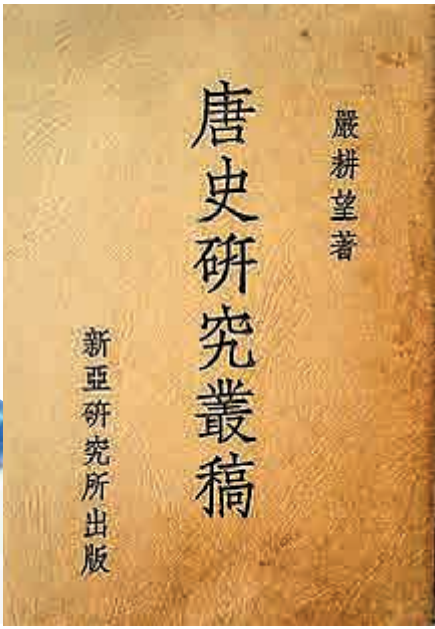 嚴耕望著
唐史研究叢稿
新亞研究所出版